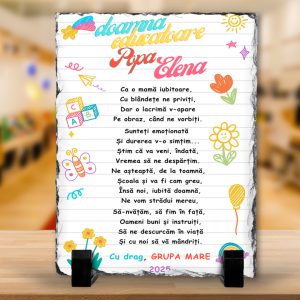 doamna
educatoare
Popa
Elena
Ca o mamă iubitoare,
Cu blândețe ne priviți,
Dar o lacrimă v-apare
Pe obraz, când ne vorbiți.
Sunteți emoționată
Și durerea v-o simțim...
Știm că va veni, îndată,
Vremea să ne despărțim.
Ne așteaptă, de la toamnă,
Școala și va fi cam greu,
Însă noi, iubită doamnă,
Ne vom strădui mereu,
Să-nvățăm, să fim în față,
Oameni buni și instruiți,
Să ne descurcăm în viață
Și cu noi să vă mândriți.
Cu drag, GRUPA MARE
2025
A
B
C